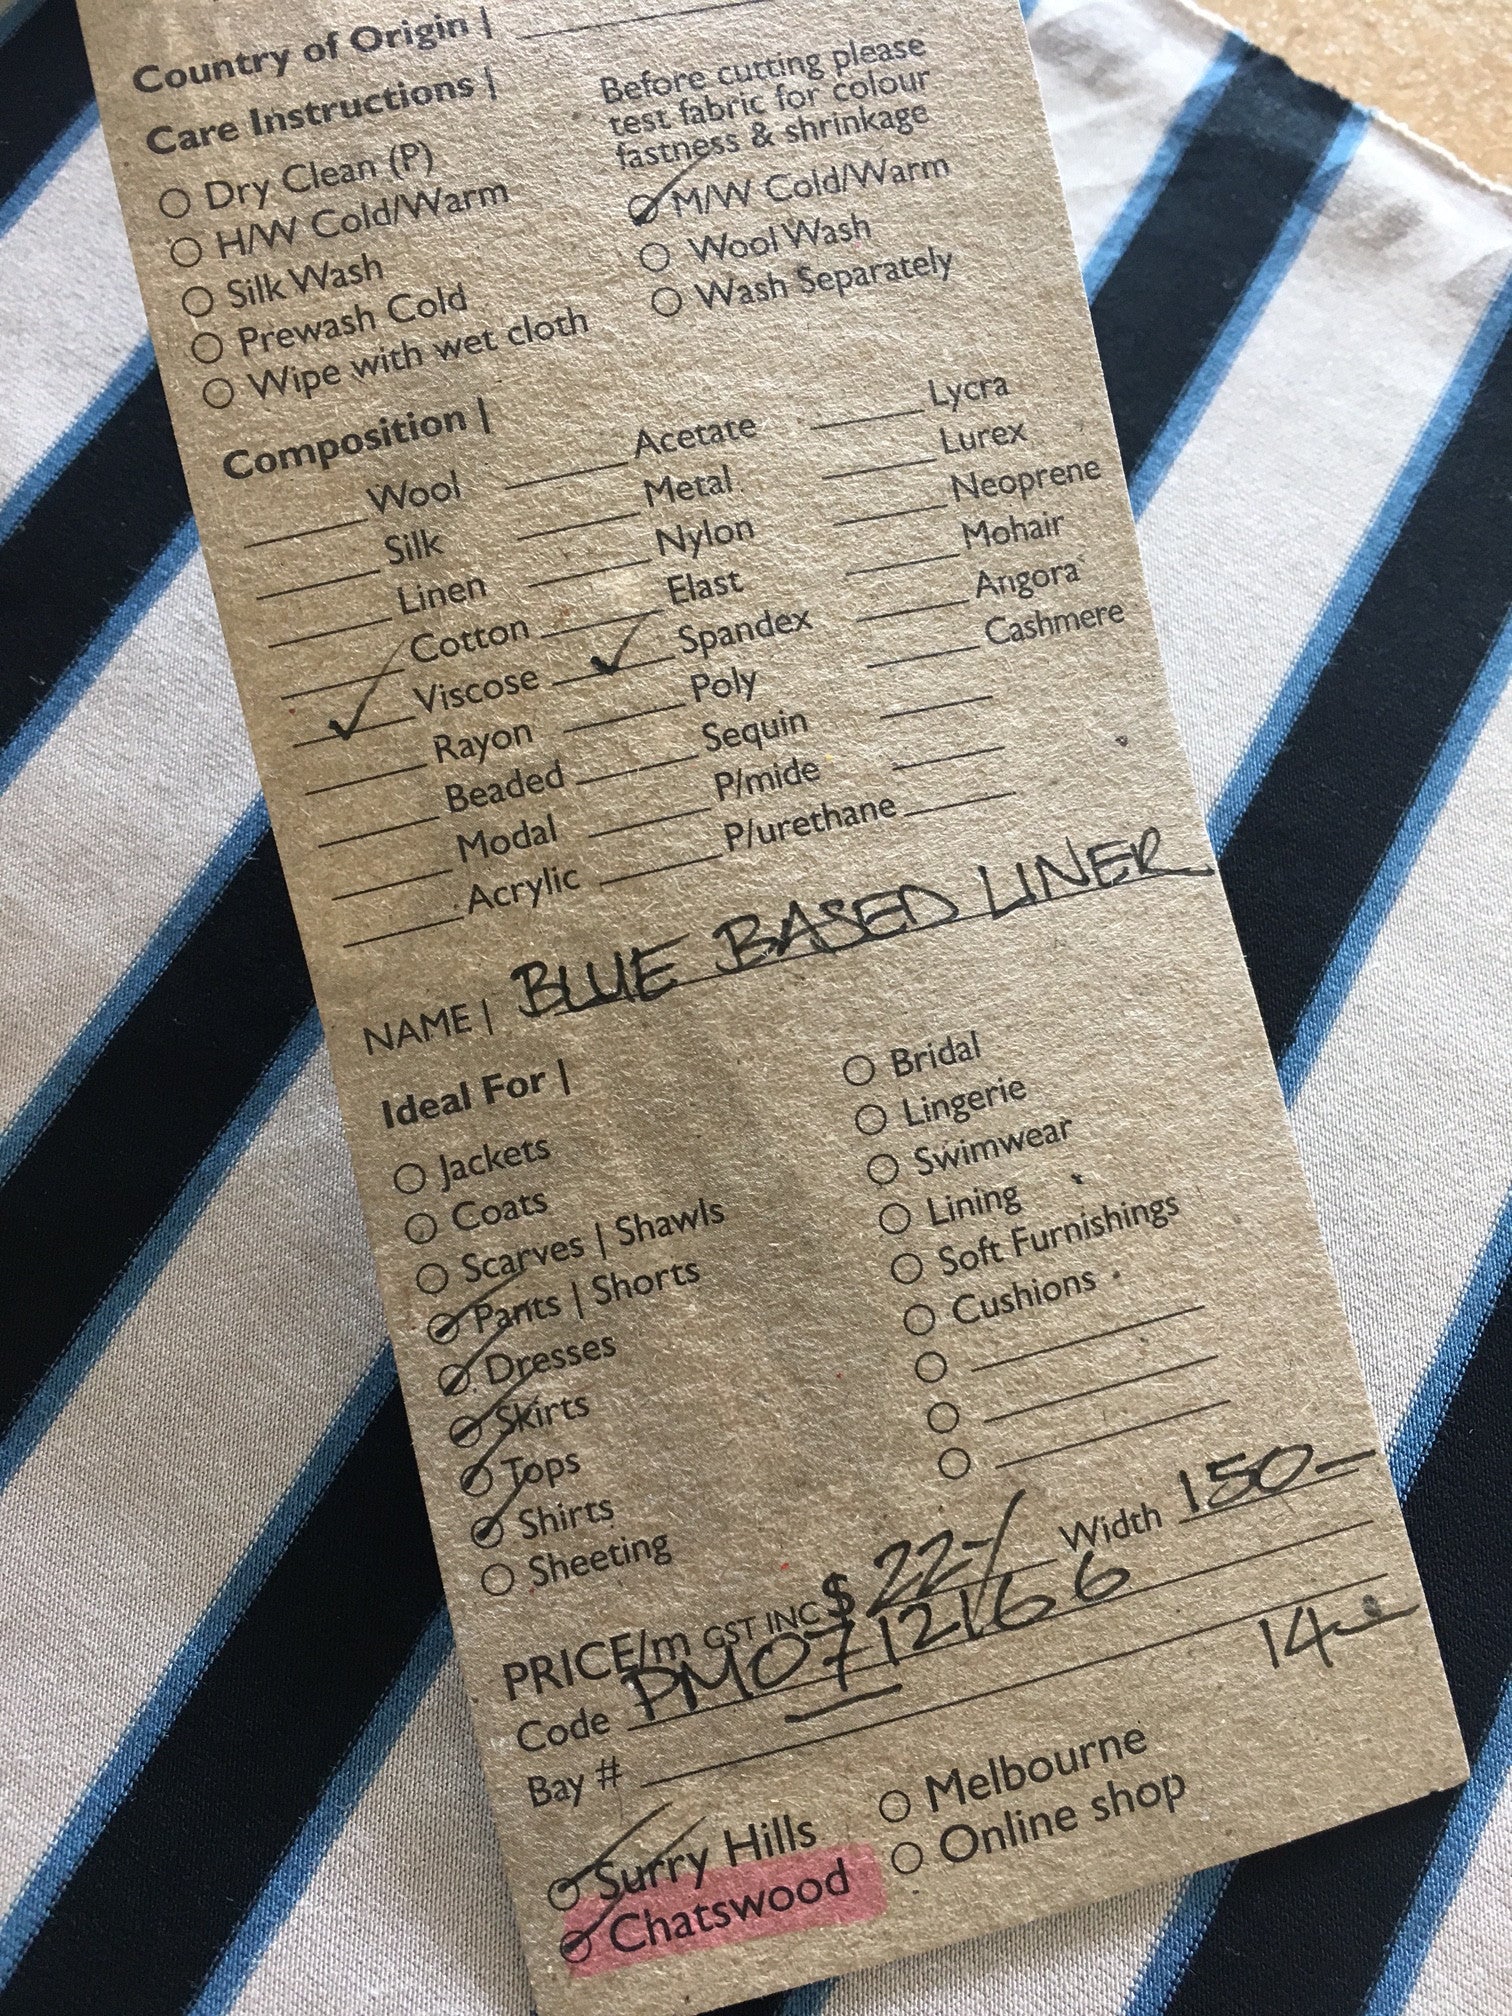 Country of Origin |
Care Instructions |
Before cutting please
test fabric for colour
fastness & shrinkage
Dry Clean (P)
H/W Cold/Warm
Silk Wash
Prewash Cold
Wipe with wet cloth
M/W Cold/Warm
Wool Wash
Wash Separately
Composition |
Wool
Silk
Linen
Cotton
Viscose
Rayon
Beaded
Modal
Acrylic
Acetate
Metal
Nylon
Elast
Spandex
Poly
Sequin
P/mide
P/urethane
Lycra
Lurex
Neoprene
Mohair
Angora
Cashmere
NAME | BLUE BASED LINER
Ideal For |
Jackets
Coats
Scarves | Shawls
Pants | Shorts
Dresses
Skirts
Tops
Shirts
Sheeting
Bridal
Lingerie
Swimwear
Lining
Soft Furnishings
Cushions
PRICE/m GST INC $ 22-/ Width 150-
Code PM0712166
Bay #
14
Surry Hills
Chatswood
Melbourne
Online shop